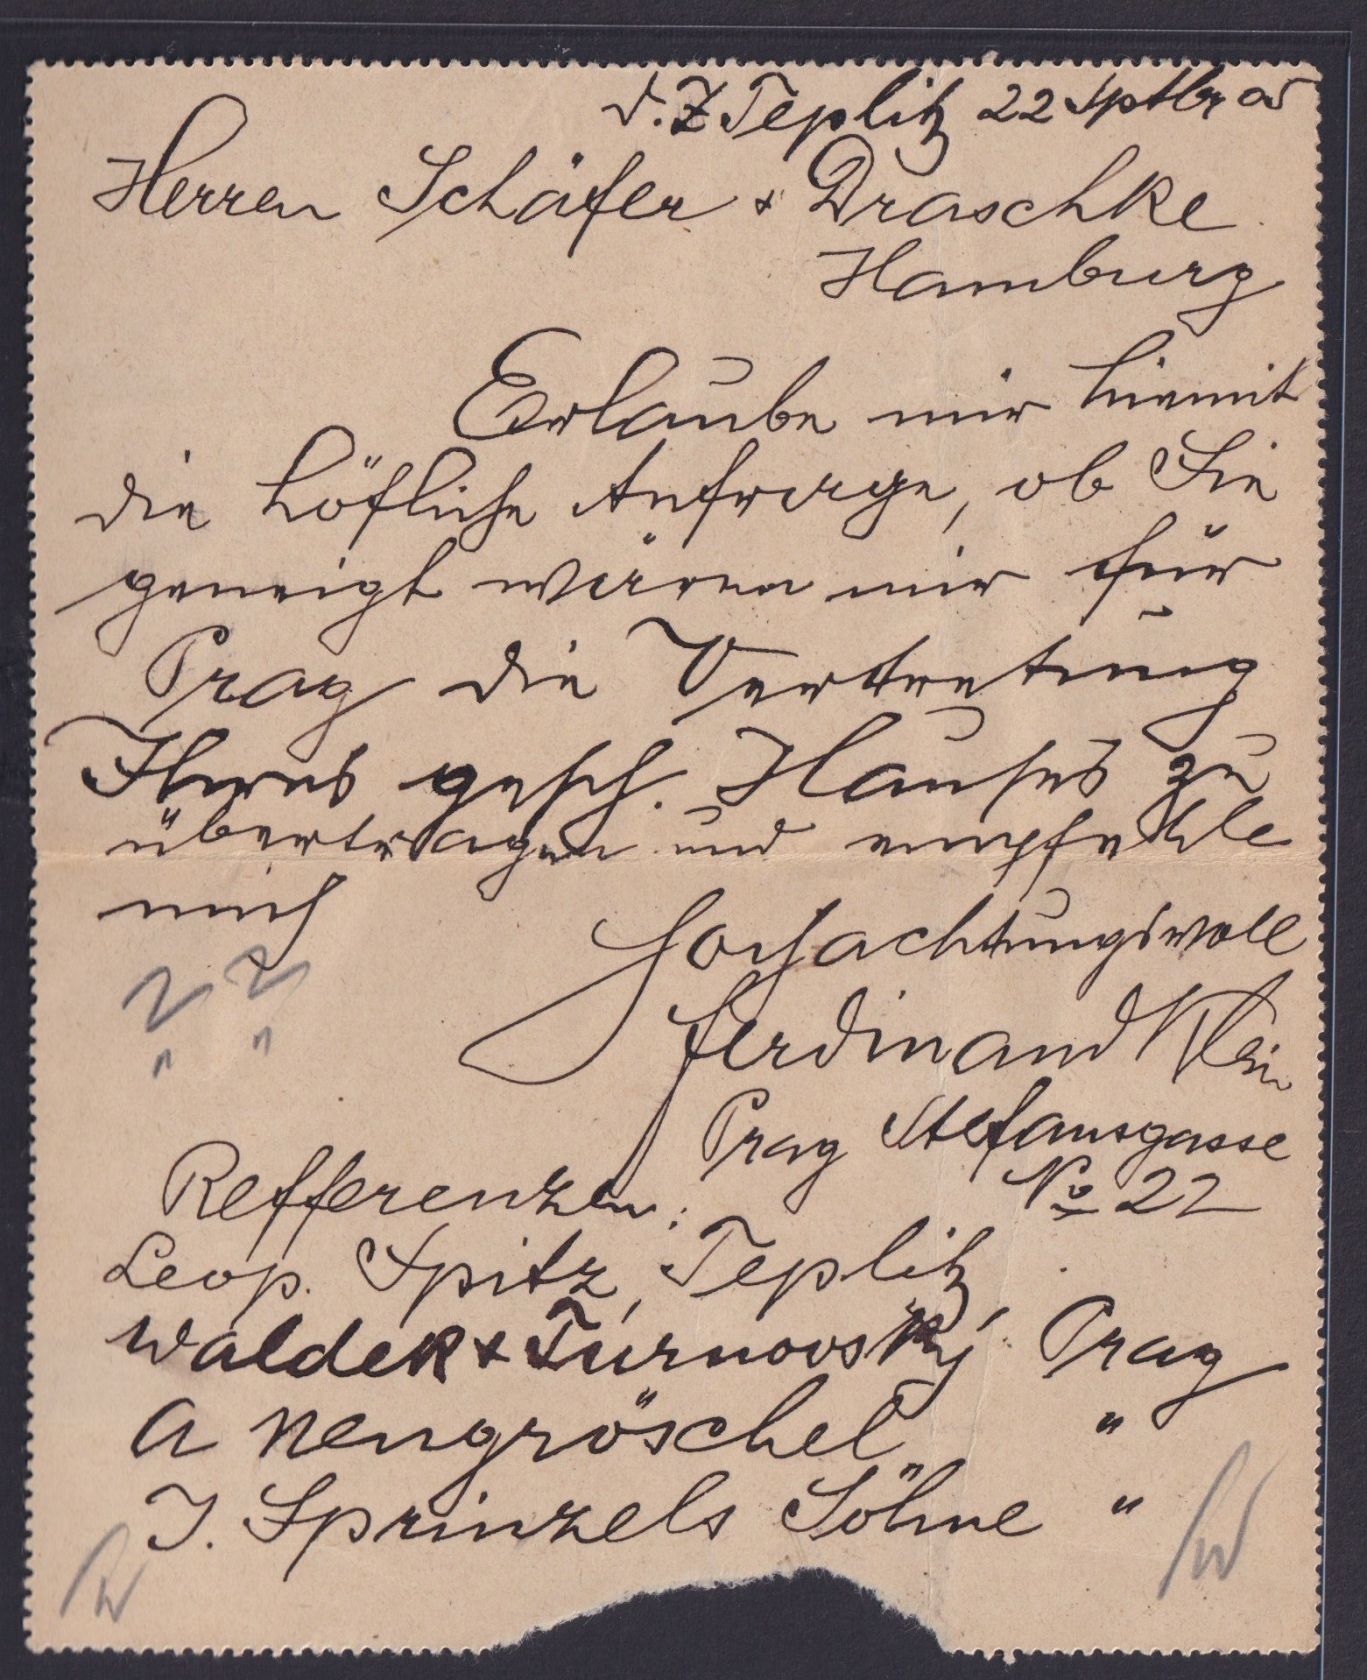 d. Z Teplitz 22 Sptbr 05
Herren Schäfer & Draschke
Hamburg
Erlaube mir hiemit
die höfliche Anfrage, ob Sie
geneigt wären mir für
Prag die Vertretung
Ihres gesch. Hauses zu
übertragen und empfehle
mich
Hochachtungsvoll
Ferdinand Klein
Prag Stefansgasse
Refferenzen: No 22
Leop. Spitz, Teplitz
Waldek & Turnovský Prag
A Neugröschel "
J. Sprinzels Söhne "